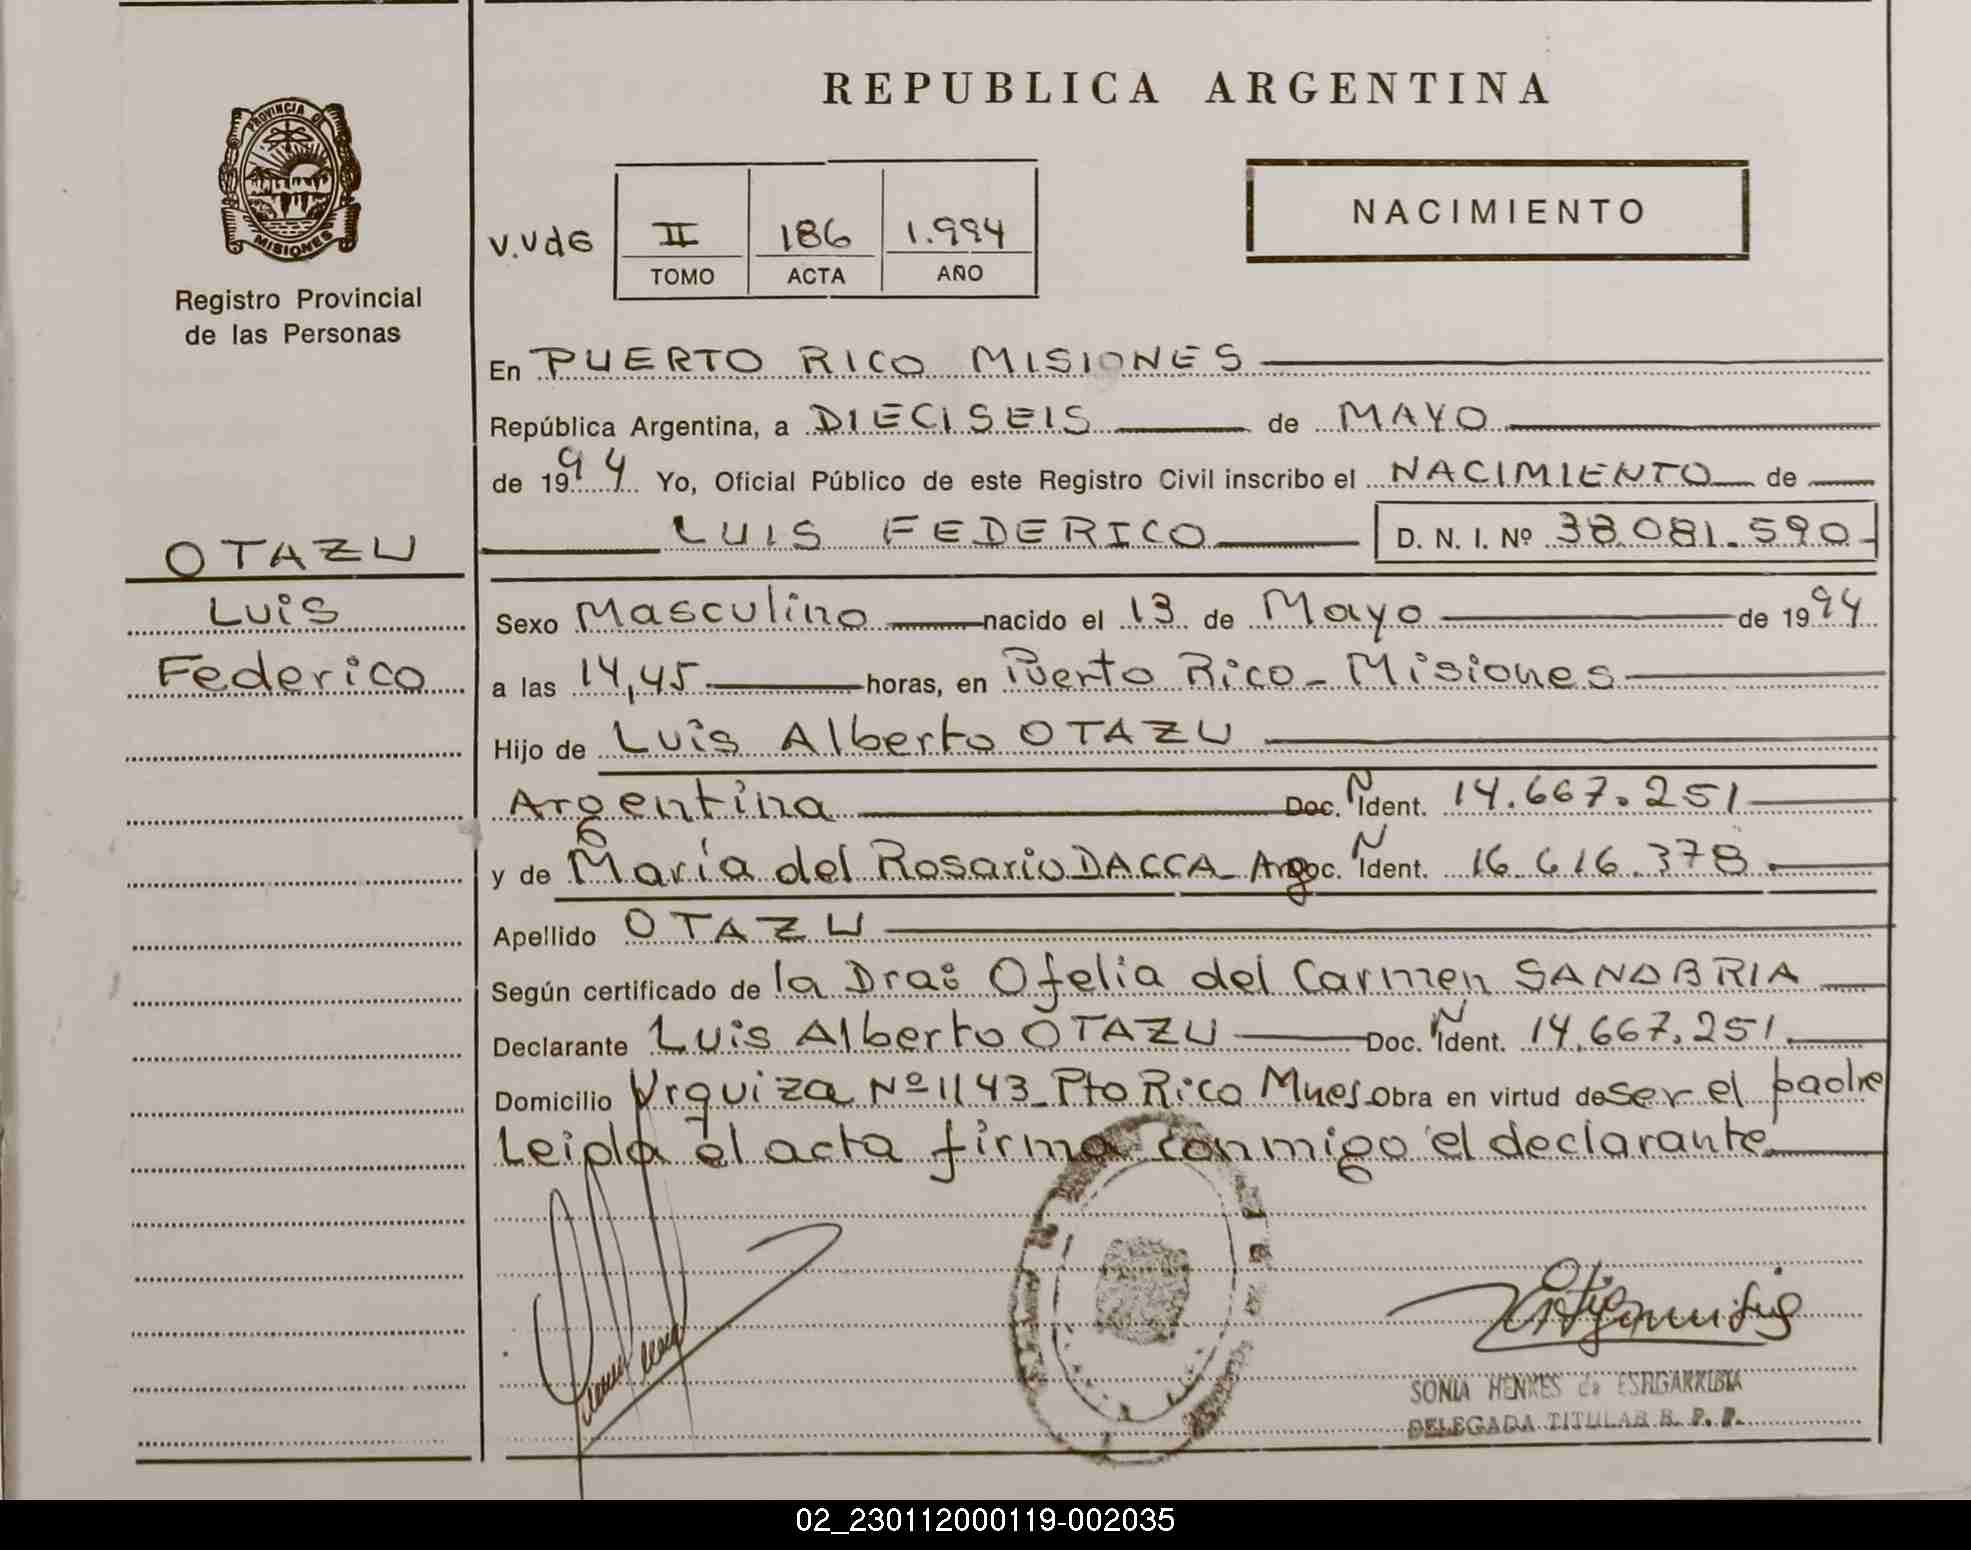 REPUBLICA ARGENTINA
PROVINCIA DE
MISIONES
Registro Provincial
de las Personas
NACIMIENTO
V.VdG II 186 1.994
TOMO ACTA AÑO
En PUERTO RICO MISIONES
República Argentina, a DIECISEIS de MAYO
de 1994 Yo, Oficial Público de este Registro Civil inscribo el NACIMIENTO de
LUIS FEDERICO D. N. I. Nº 38.081.590
OTAZU
Luis
Federico
Sexo Masculino nacido el 13 de Mayo de 1994
a las 14,45 horas, en Puerto Rico - Misiones
Hijo de Luis Alberto OTAZU
Argentina Doc. N Ident. 14.667.251
y de María del Rosario DACCA Arg Doc. N Ident. 16.616.378
Apellido OTAZU
Según certificado de la Dra: Ofelia del Carmen SANABRIA
Declarante Luis Alberto OTAZU Doc. N Ident. 14.667.251
Domicilio Urquiza Nº 1143 - Pto Rico Mnes Obra en virtud de ser el padre
Leida el acta firma conmigo el declarante
SONIA HENKES de ESTIGARRIBIA
DELEGADA TITULAR R. P. P.
02_230112000119-002035